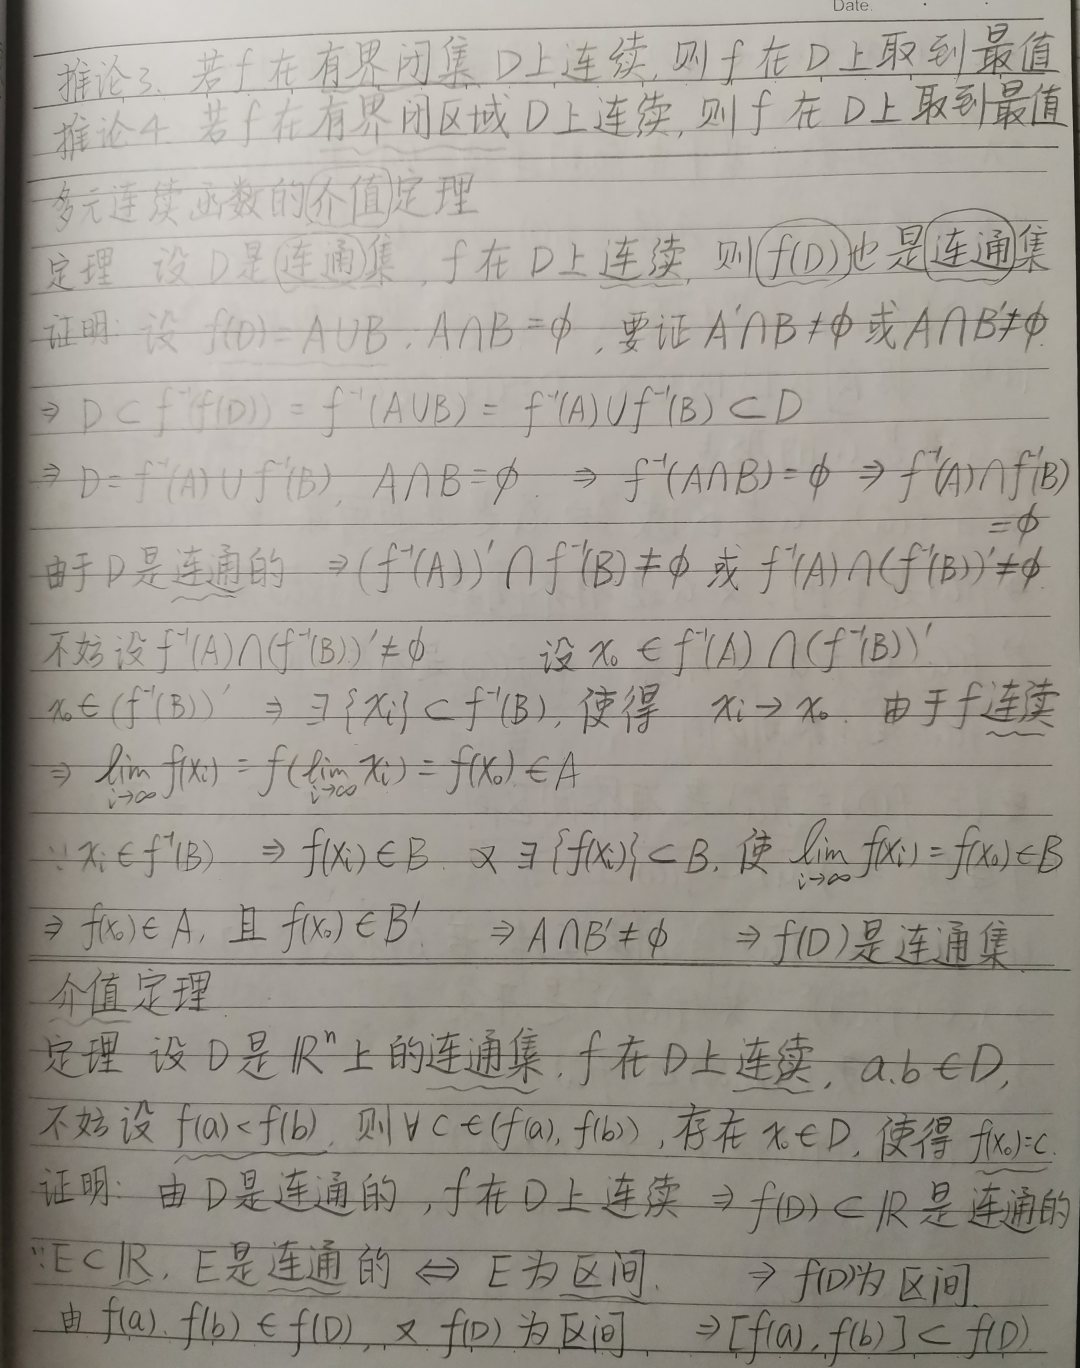 Date.
推论3. 若f在有界闭集D上连续,则f在D上取到最值
推论4. 若f在有界闭区域D上连续,则f在D上取到最值
多元连续函数的介值定理
定理 设D是连通集,f在D上连续,则f(D)也是连通集
证明: 设 f(D)=A∪B, A∩B=ϕ, 要证A'∩B≠ϕ或A∩B'≠ϕ.
⇒ D⊂f⁻¹(f(D))=f⁻¹(A∪B)=f⁻¹(A)∪f⁻¹(B)⊂D
⇒ D=f⁻¹(A)∪f⁻¹(B), A∩B=ϕ. ⇒ f⁻¹(A∩B)=ϕ ⇒ f⁻¹(A)∩f⁻¹(B)
=ϕ
由于D是连通的 ⇒(f⁻¹(A))'∩f⁻¹(B)≠ϕ 或 f⁻¹(A)∩(f⁻¹(B))'≠ϕ
不妨设f⁻¹(A)∩(f⁻¹(B))'≠ϕ 设x₀∈f⁻¹(A)∩(f⁻¹(B))'
x₀∈(f⁻¹(B))' ⇒∃{xᵢ}⊂f⁻¹(B), 使得 xᵢ→x₀. 由于f连续
⇒ lim_{i→∞} f(xᵢ)=f(lim_{i→∞} xᵢ)=f(x₀)∈A
∵xᵢ∈f⁻¹(B) ⇒f(xᵢ)∈B. 又∃{f(xᵢ)}⊂B, 使 lim_{i→∞} f(xᵢ)=f(x₀)∈B
⇒ f(x₀)∈A, 且f(x₀)∈B'. ⇒A∩B'≠ϕ ⇒f(D)是连通集.
介值定理
定理 设D是ℝⁿ上的连通集,f在D上连续, a.b∈D,
不妨设f(a)<f(b), 则∀C∈(f(a),f(b)),存在x₀∈D,使得f(x₀)=c.
证明: 由D是连通的,f在D上连续 ⇒f(D)⊂ℝ是连通的
∵E⊂ℝ, E是连通的 ⇔ E为区间. ⇒f(D)为区间.
由f(a).f(b)∈f(D), 又f(D)为区间 ⇒[f(a),f(b)]⊂f(D)